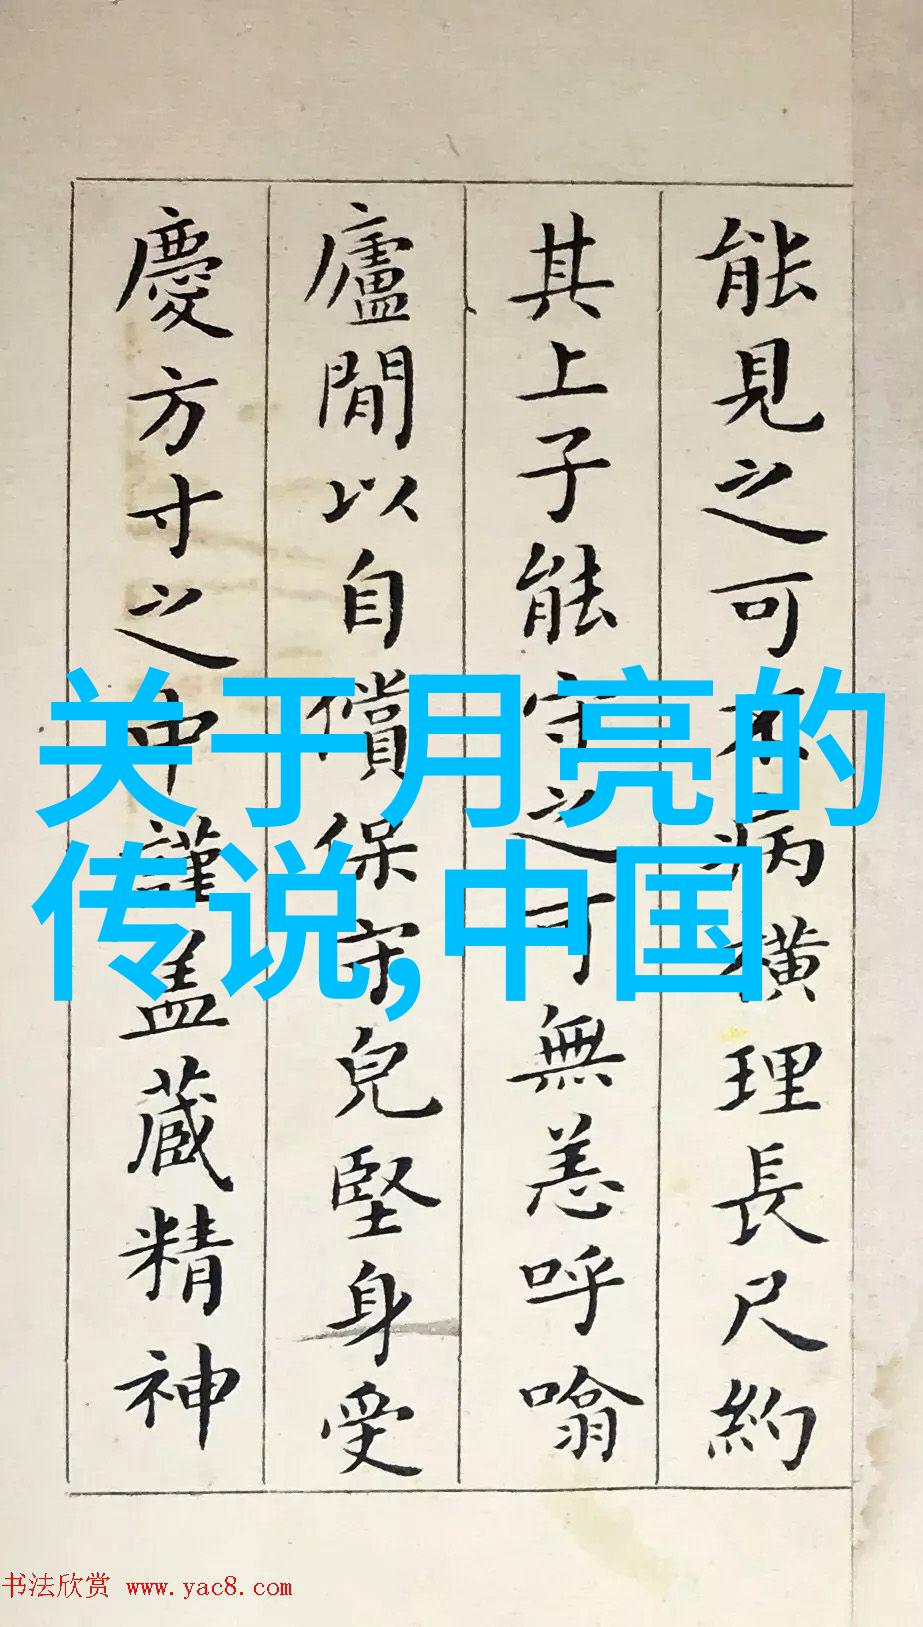 能見之可不病橫理長尺約
其上子能守之可無恙呼噏
廬間以自償保守兒堅身受
慶方寸之中謹盖藏精神
关于月亮的
传说,中国
书法欣赏 www.yac8.com